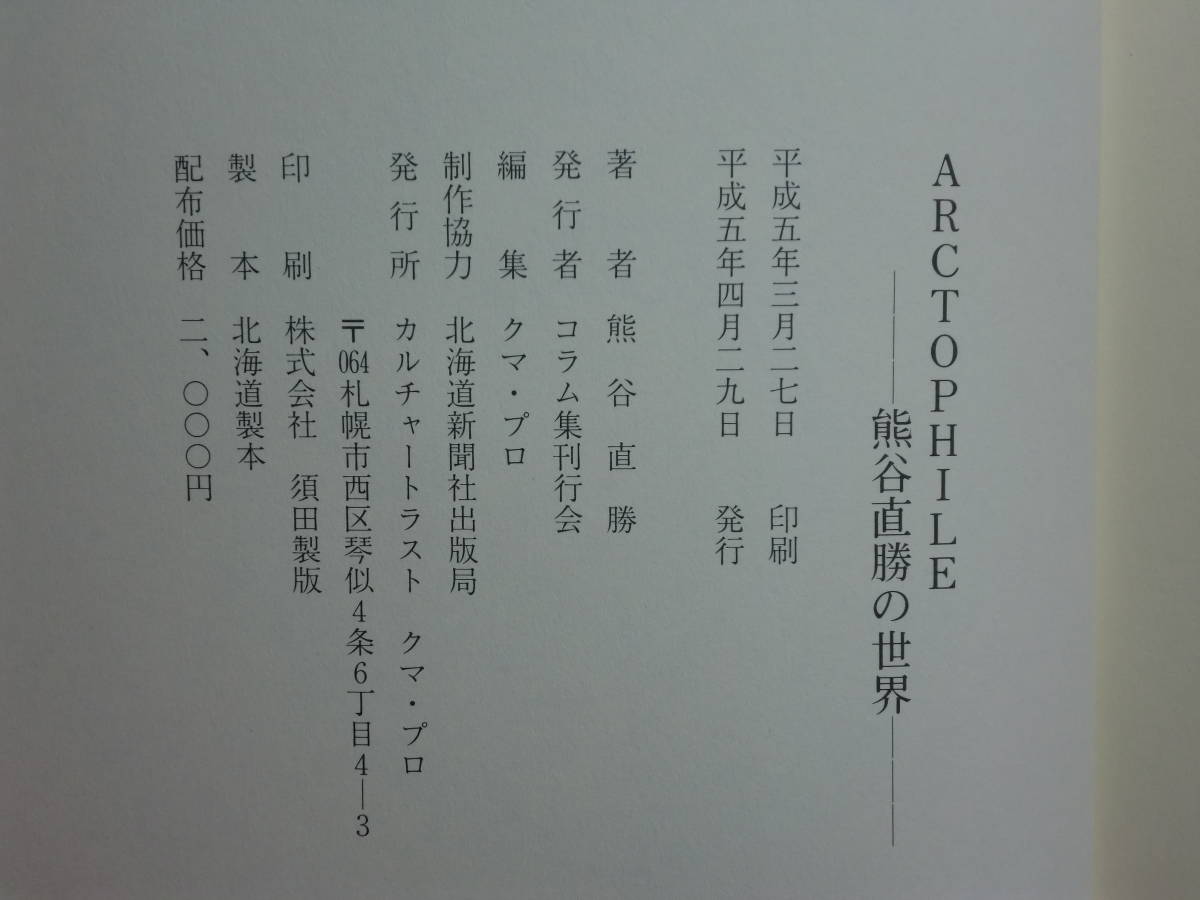 ARCTOPHILE
――熊谷直勝の世界――
平成五年三月二七日 印刷
平成五年四月二九日 発行
著者 熊谷直勝
発行者 コラム集刊行会
編集 クマ・プロ
制作協力 北海道新聞社出版局
発行所 カルチャートラスト クマ・プロ
〒064札幌市西区琴似4条6丁目4―3
印刷 株式会社 須田製版
製本 北海道製本
配布価格 二、〇〇〇円